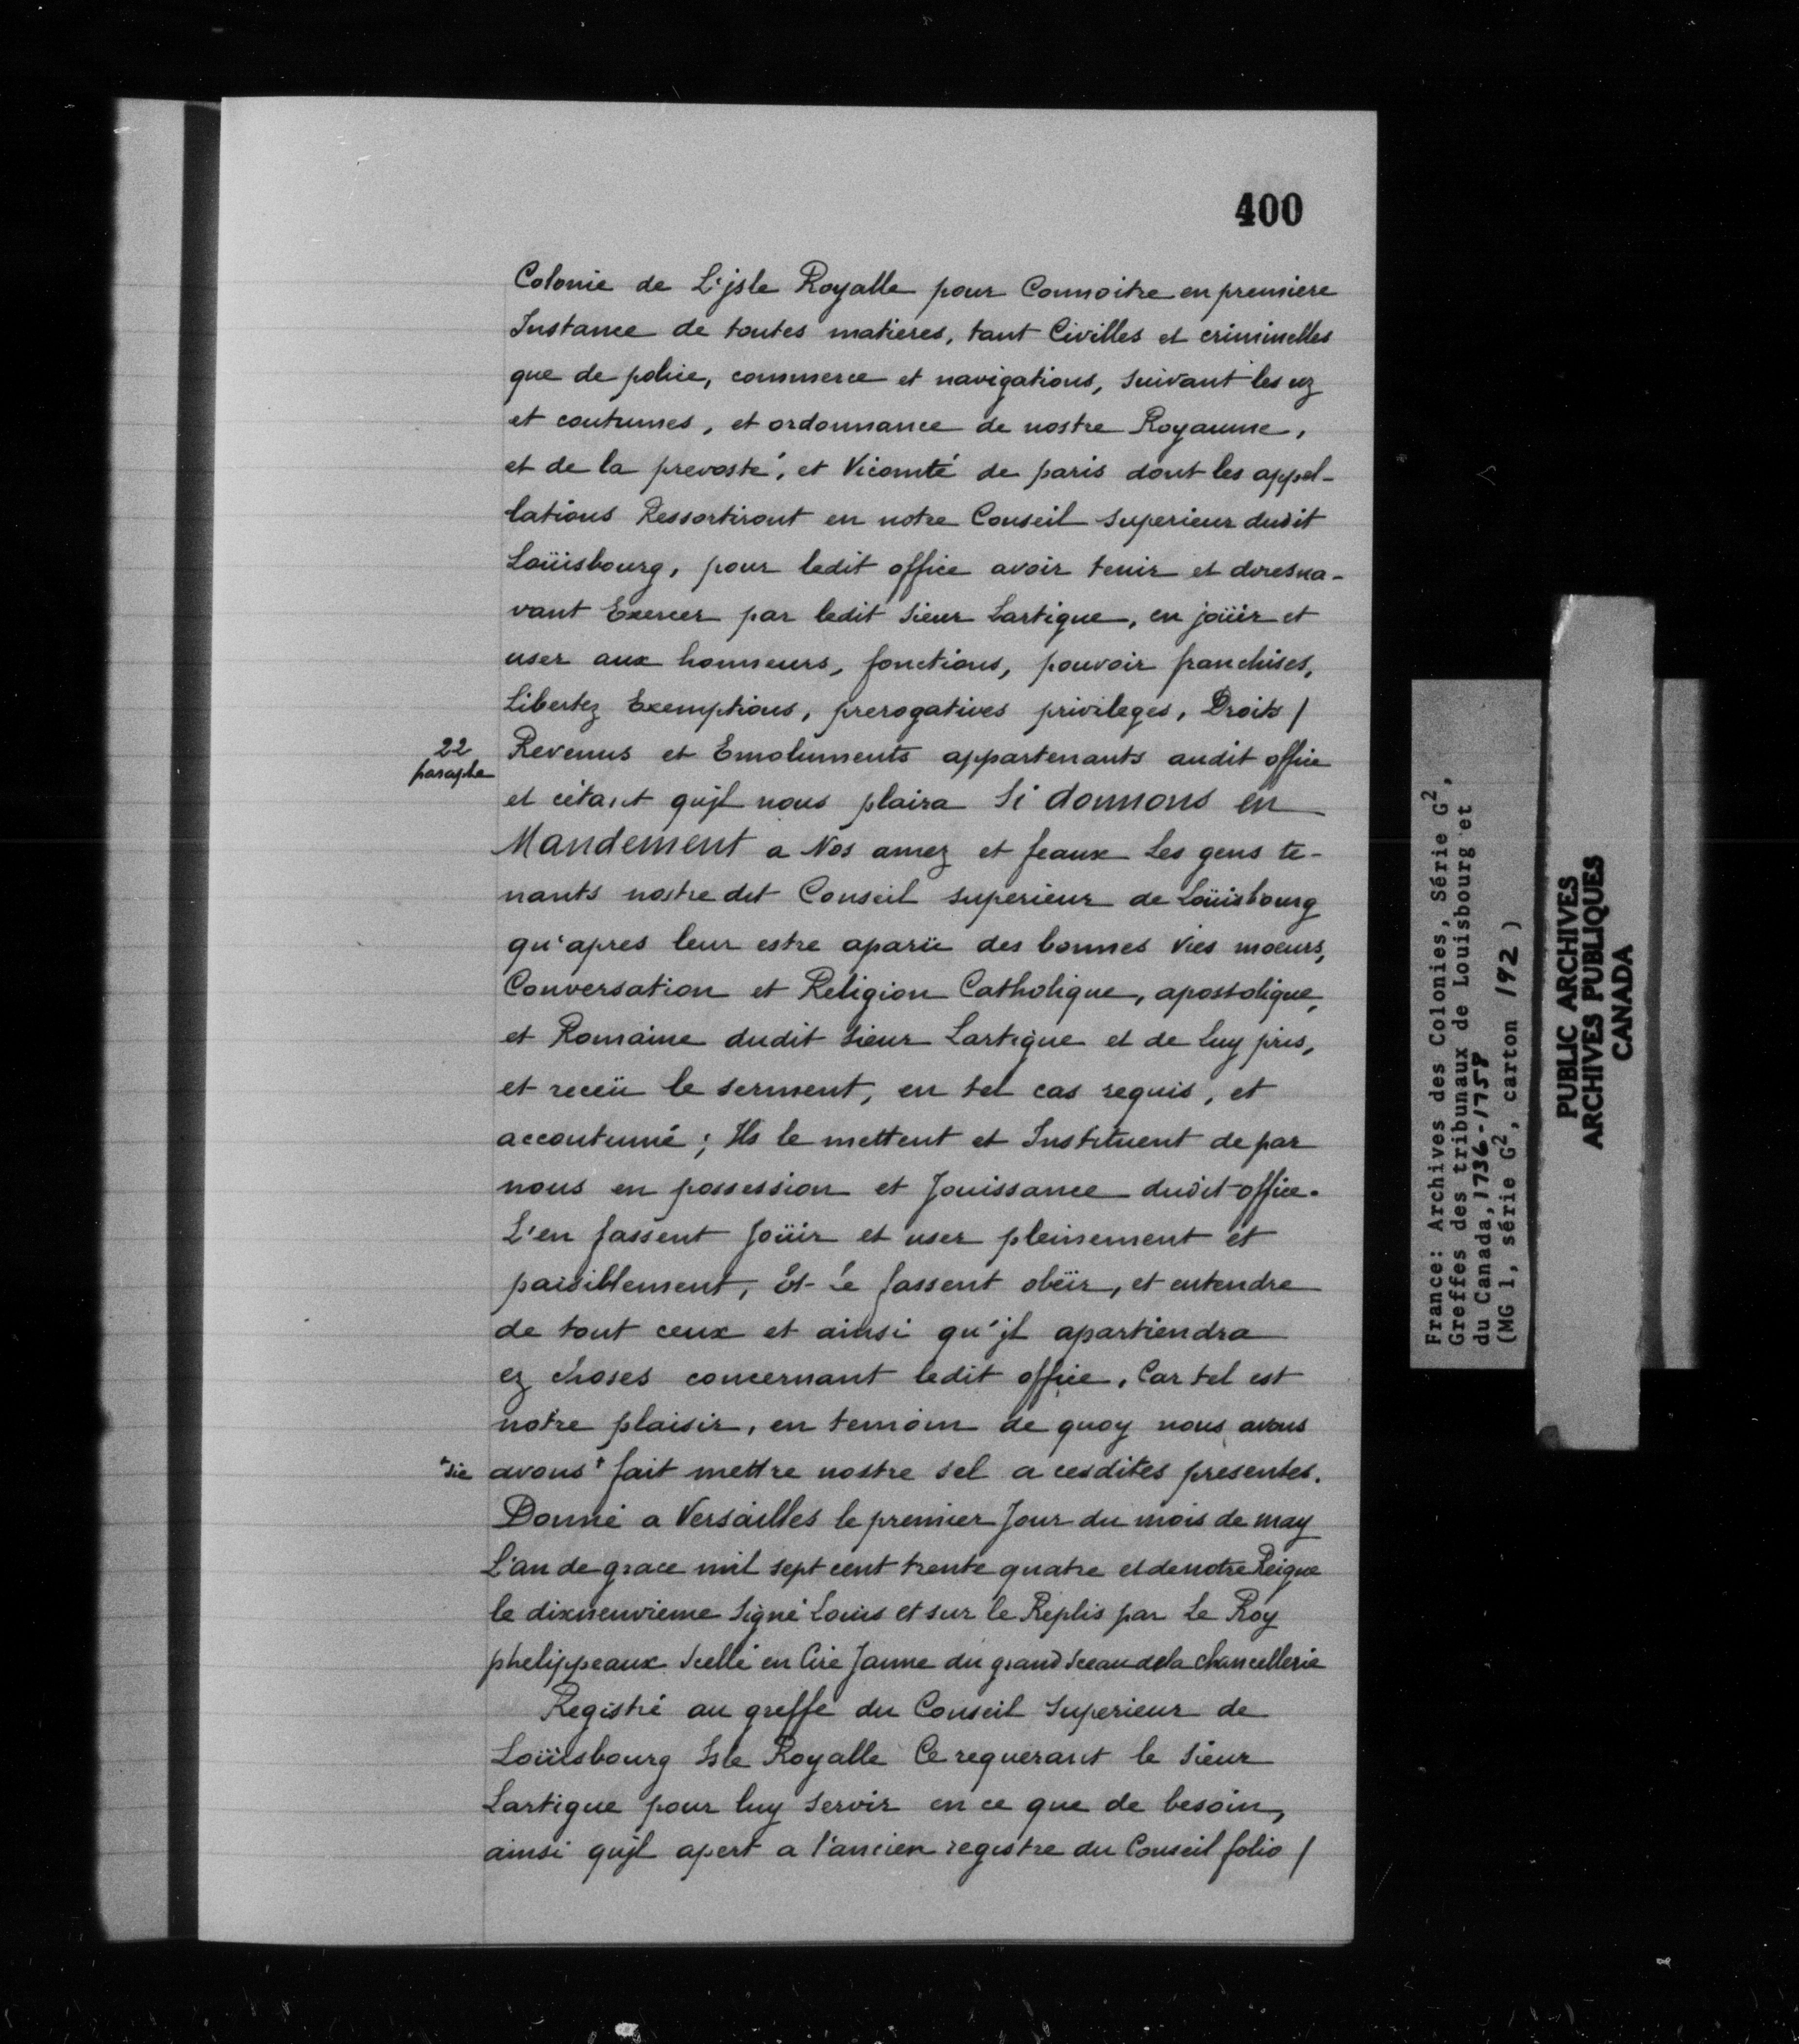 400
Colonie de L'jsle Royalle pour Connoitre en premiere
Instance de toutes matieres, tant Civilles et criminelles
que de police, commerce et navigations, suivant les uz
et coutumes, et ordonnance de nostre Royaume,
et de la prevosté, et Vicomté de paris dont les appel-
lations Ressortiront en notre Conseil superieur dudit
Loüisbourg, pour ledit office avoir tenir et doresna-
vant Exercer par ledit sieur Lartigue, en joüir et
user aux honneurs, fonctions, pouvoir franchises,
Libertez Exemptions, prerogatives privileges, Droits /
22
paraphe
Revenus et Emoluments appartenants audit office
et cétant qu'jl nous plaira Si donnons en
Mandement a Nos amez et feaux Les gens te-
nants nostre dit Conseil superieur de Loüisbourg
qu'apres leur estre aparü des bonnes vies moeurs,
Conversation et Religion Catholique, apostolique,
et Romaine dudit sieur Lartigue et de luy pris,
et receü le serment, en tel cas requis, et
accoutumé; Ils le mettent et Instituent de par
nous en possession et Jouissance dudit office.
L'en fassent Joüir et user pleinement et
paisiblement, Et Le fassent obéir, et entendre
de tout ceux et ainsi qu'jl apartiendra
ez choses concernant ledit office, Car tel est
notre plaisir, en temoin de quoy nous avons
+sic avons+ fait mettre nostre sel a cesdites presentes.
Donné a Versailles le premier Jour du mois de may
L'an de grace mil sept cent trente quatre et de notre Reigne
le dixneuvieme Signé Louis et sur le Replis par Le Roy
phelippeaux Scellé en Cire Jaune du grand sceau de la chancellerie
Registré au greffe du Conseil Superieur de
Loüisbourg Isle Royalle Ce requerant le sieur
Lartigue pour luy servir en ce que de besoin,
ainsi qu'jl apert a l'ancien registre du Conseil folio /
France: Archives des Colonies, Série G2,
Greffes des tribunaux de Louisbourg et
du Canada, 1736-1758
(MG 1, série G2, carton 192 )
PUBLIC ARCHIVES
ARCHIVES PUBLIQUES
CANADA